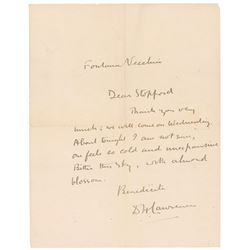 Fontana Vecchia
Dear Stopford
Thank you very
much: we will come on Wednesday.
About tonight I am not sure,
one feels so cold and unexpansive
Better this sky, with almond
blossom.
Benedicite
D H Lawrence